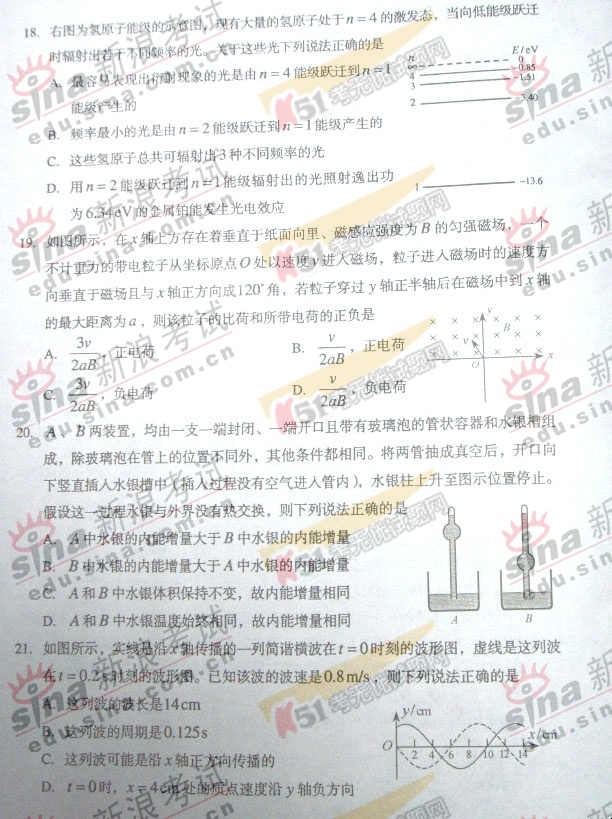 18. 右图为氢原子能级的示意图，现有大量的氢原子处于n＝4的激发态，当向低能级跃迁
时辐射出若干不同频率的光。关于这些光下列说法正确的是
A. 最容易表现出衍射现象的光是由n＝4能级跃迁到n＝1
能级产生的
B. 频率最小的光是由n＝2能级跃迁到n＝1能级产生的
C. 这些氢原子总共可辐射出3种不同频率的光
D. 用n＝2能级跃迁到n＝1能级辐射出的光照射逸出功
为6.34eV的金属铂能发生光电效应
n E/eV
∞ 0
4 -0.85
3 -1.51
2 -3.40
1 -13.6
19. 如图所示，在x轴上方存在着垂直于纸面向里、磁感应强度为B的匀强磁场，一个
不计重力的带电粒子从坐标原点O处以速度v进入磁场，粒子进入磁场时的速度方
向垂直于磁场且与x轴正方向成120°角，若粒子穿过y轴正半轴后在磁场中到x轴
的最大距离为a，则该粒子的比荷和所带电荷的正负是
A. 3v/2aB，正电荷 B. v/2aB，正电荷
C. 3v/2aB，负电荷 D. v/2aB，负电荷
y B v O x
20. A、B两装置，均由一支一端封闭、一端开口且带有玻璃泡的管状容器和水银槽组
成，除玻璃泡在管上的位置不同外，其他条件都相同。将两管抽成真空后，开口向
下竖直插入水银槽中（插入过程没有空气进入管内），水银柱上升至图示位置停止。
假设这一过程水银与外界没有热交换，则下列说法正确的是
A. A中水银的内能增量大于B中水银的内能增量
B. B中水银的内能增量大于A中水银的内能增量
C. A和B中水银体积保持不变，故内能增量相同
D. A和B中水银温度始终相同，故内能增量相同
A B
21. 如图所示，实线是沿x轴传播的一列简谐横波在t＝0时刻的波形图，虚线是这列波
在t＝0.2s时刻的波形图。已知该波的波速是0.8m/s，则下列说法正确的是
A. 这列波的波长是14cm
B. 这列波的周期是0.125s
C. 这列波可能是沿x轴正方向传播的
D. t＝0时，x＝4cm处的质点速度沿y轴负方向
y/cm
O 2 4 6 8 10 12 14 x/cm
sina 新浪考试
edu.sina.com.cn
K51考元试试题网